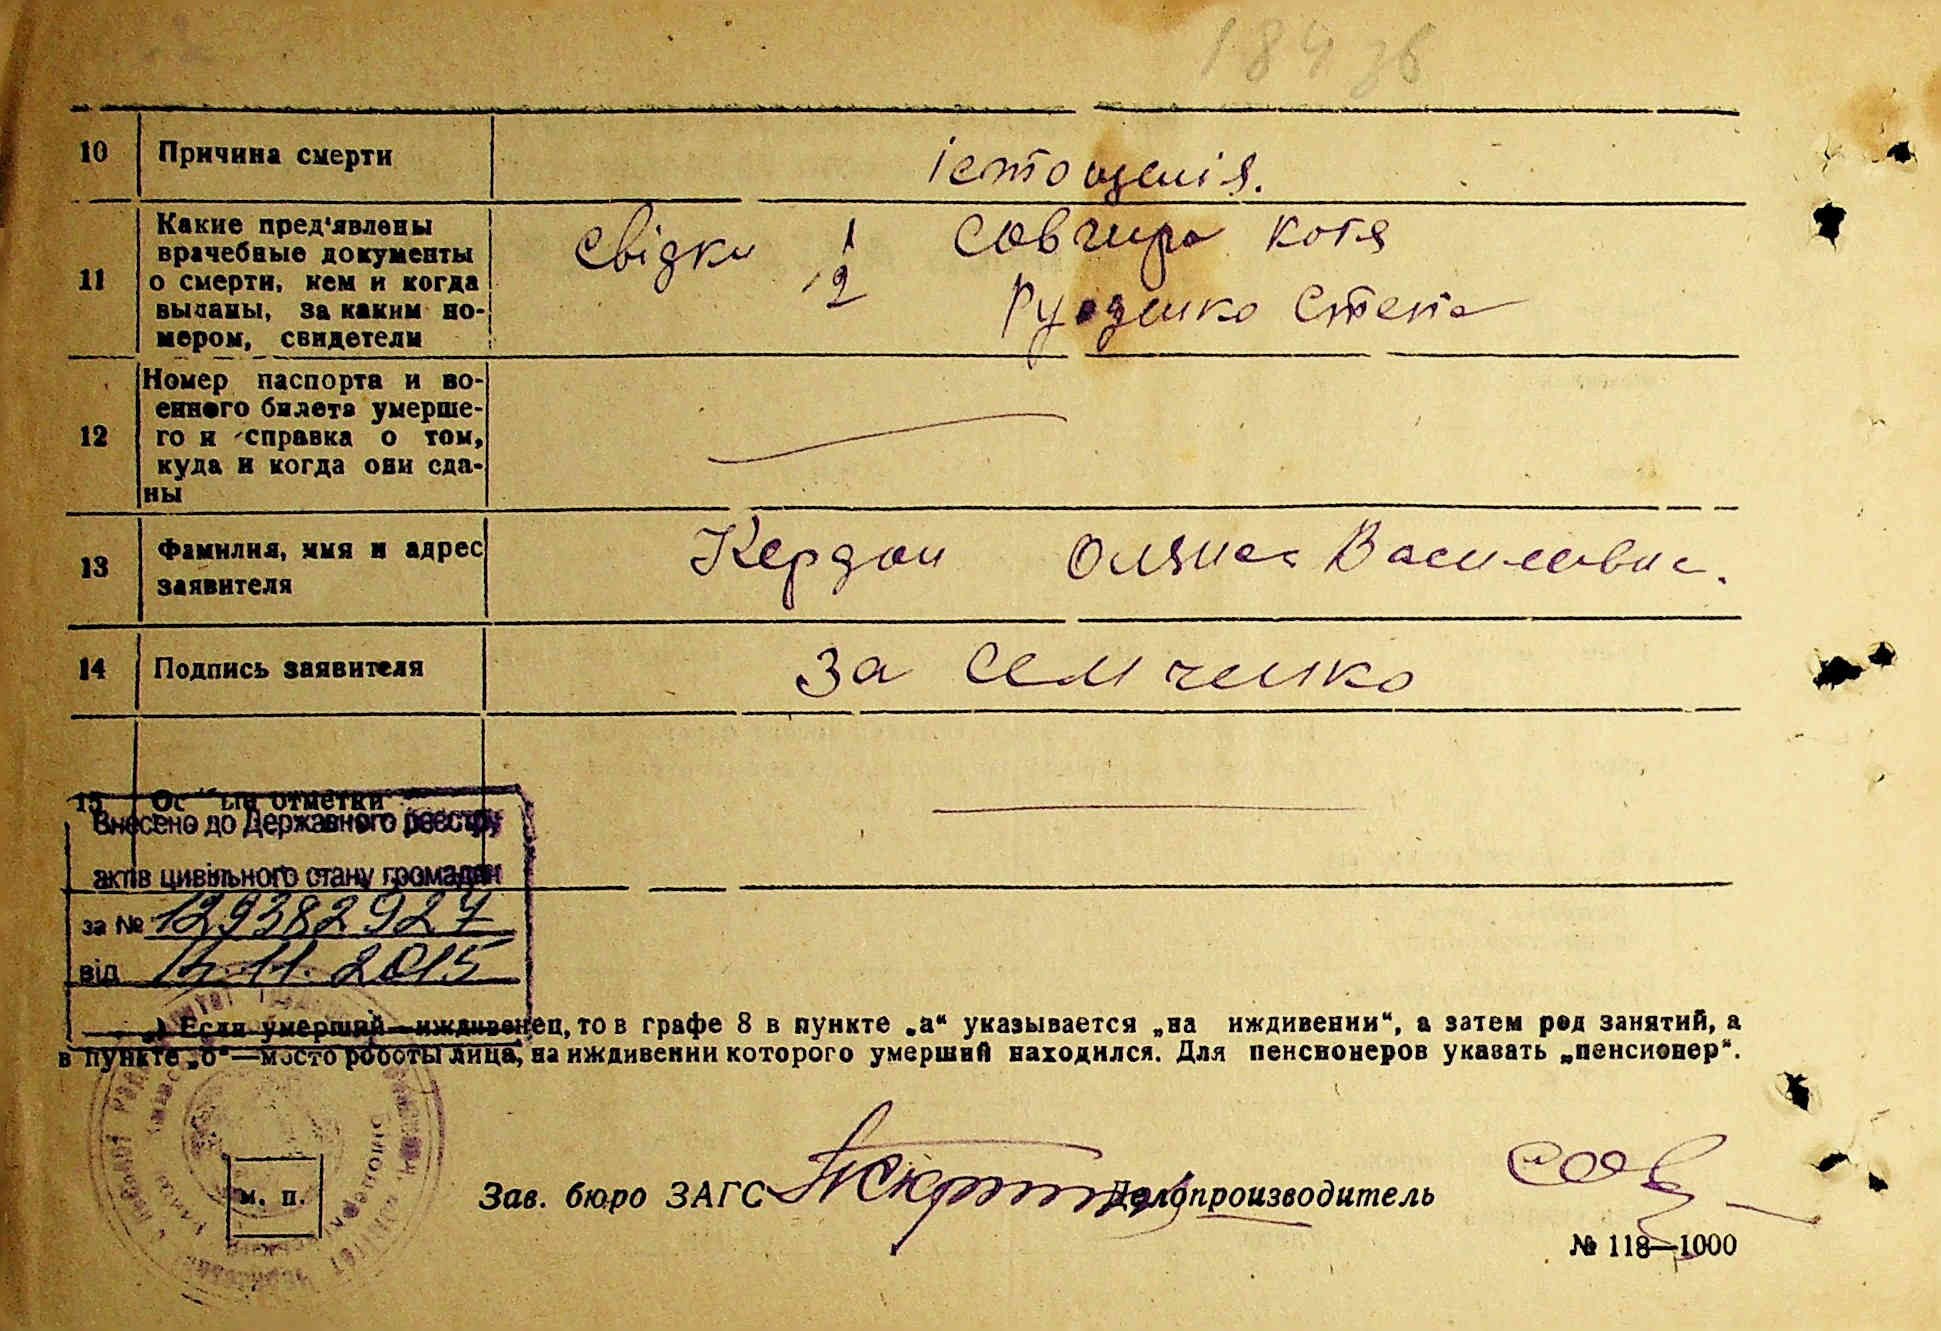 184 зв
10 Причина смерти істощенія.
11 Какие пред'явлены
врачебные документы
о смерти, кем и когда
выданы, за каким но-
мером, свидетели
свідки 1 Совгира котя
2 Руденко Степа
12 Номер паспорта и во-
енного билета умерше-
го и справка о том,
куда и когда они сда-
ны
13 Фамилия, имя и адрес
заявителя
Кердан Оляна Василевна.
14 Подпись заявителя За Семченко
15 Ос ые отметки
Внесено до Державного реєстру
актів цивільного стану громадян
за № 129382927
від 11.2015
) Если умерший—иждивенец, то в графе 8 в пункте „а“ указывается „на иждивении“, а затем род занятий, а
в пункте „б“—место роботы лица, на иждивении которого умерший находился. Для пенсионеров указать „пенсионер“.
м. п.
Зав. бюро ЗАГС Делопроизводитель
№ 118—1000